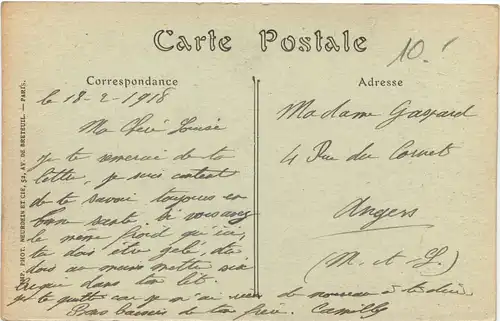 Carte Postale
10.
Correspondance
Adresse
le 18-2-1918
Ma Chère Louise
Je te remercie de ta
lettre, je suis content
de te savoir toujours en
bonne santé. Si vous avez
le même froid qu'ici,
tu dois être gelé, tu
dois au moins mettre six
briques dans ton lit.
je te quitte car je n'ai rien de nouveau à te dire
Bons baisers de ton frère. Camille
Madame Gaspard
4 Rue du Cornet
Angers
(M. et L.)
IMP. PHOT. NEURDEIN ET CIE, 52, AV. DE BRETEUIL. — PARIS.